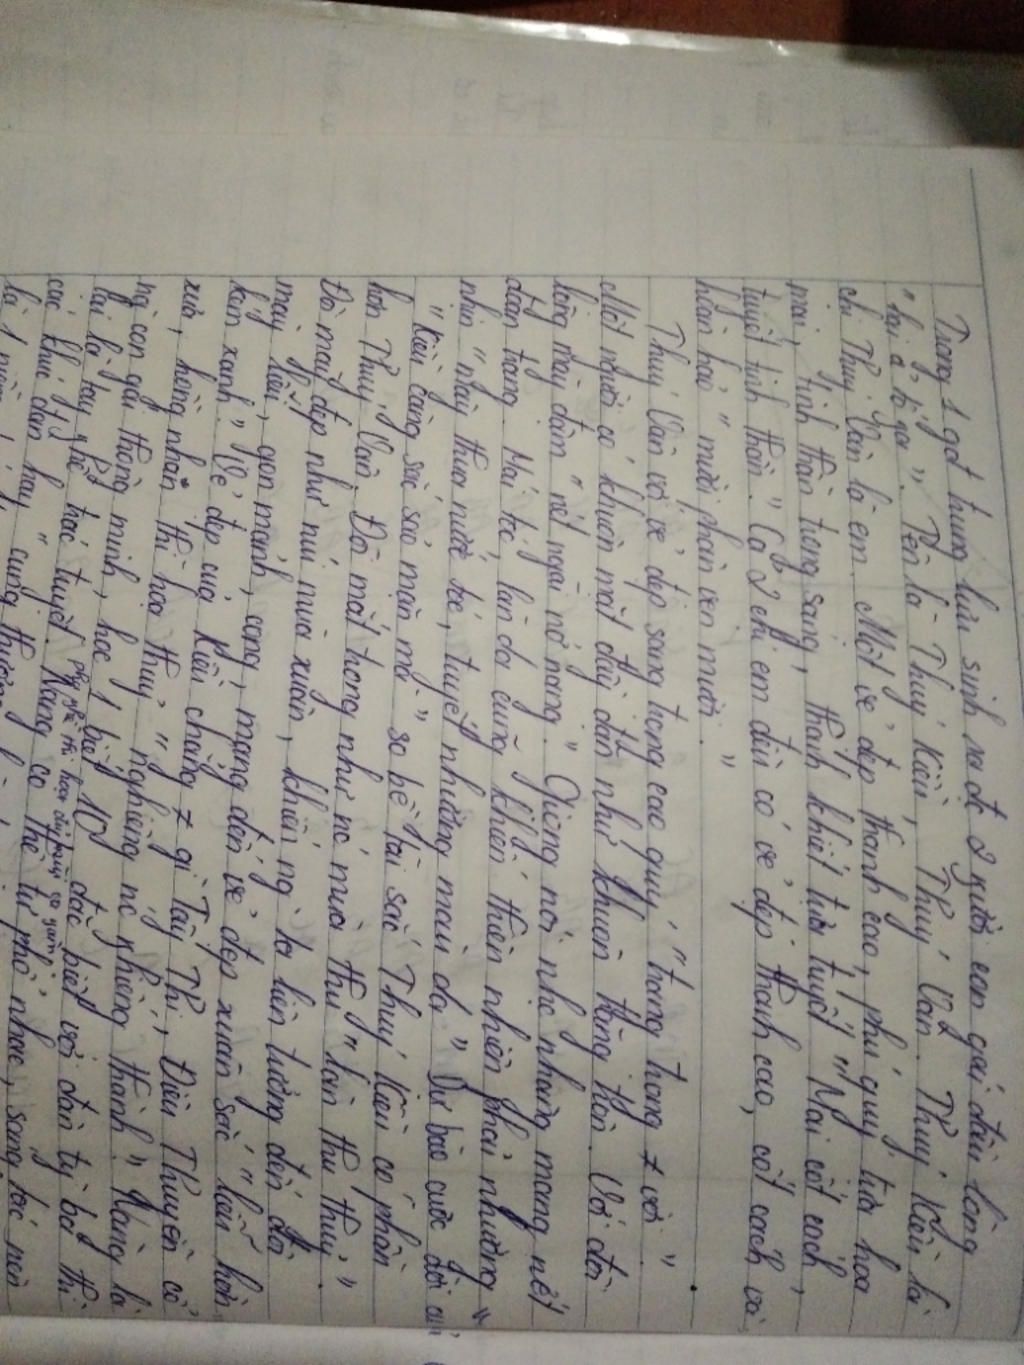 Trong 1 gđ trung lưu sinh ra đc 2 người con gái đầu lòng
"hai ả tố nga". Tên là Thúy Kiều, Thúy Vân. Thúy Kiều là
chị Thúy Vân là em. Một vẻ đẹp thanh cao, phú quý tựa hoa
mai, tinh thần trong sáng, thanh khiết tựa tuyết "Mai cốt cách,
tuyết tinh thần". Cả 2 chị em đều có vẻ đẹp thanh cao, cốt cách và
hoàn hảo "mười phân vẹn mười."
Thúy Vân với vẻ đẹp sang trọng cao quý "trang trọng ≠ vời".
Một người có khuôn mặt đầy đặn như khuôn trăng tròn. Với đôi
lông mày đậm "nét ngài nở nang". Giọng nói nhẹ nhàng mang nét
đoan trang. Mái tóc, làn da cũng khiến thiên nhiên phải nhường
nhịn "mây thua nước tóc, tuyết nhường màu da". Dự báo cuộc đời
"Kiều càng sắc sảo mặn mà" so bề tài sắc Thúy Kiều có phần
hơn Thúy Vân. Đôi mắt trong như nc mùa thu "làn thu thủy"
Đôi mày đẹp như núi mùa xuân, khiến ng ta liên tưởng đến đôi
mày liễu, gọn mảnh, cong, mang đến vẻ đẹp xuân sắc "liễu hờn
kém xanh". Vẻ đẹp của Kiều chẳng ≠ gì Tây Thi, Điêu Thuyền cổ
xưa, hồng nhan thì họa thủy "nghiêng nc nghiêng thành". Nàng là
ng con gái thông minh, học 1 biết 10 đặc biệt với đàn tỳ bà thì
lại là tay nghề trác tuyệt. Nàng có thể tự phổ nhạc, sáng tác nên
các khúc đàn hay "cung thương
là 1